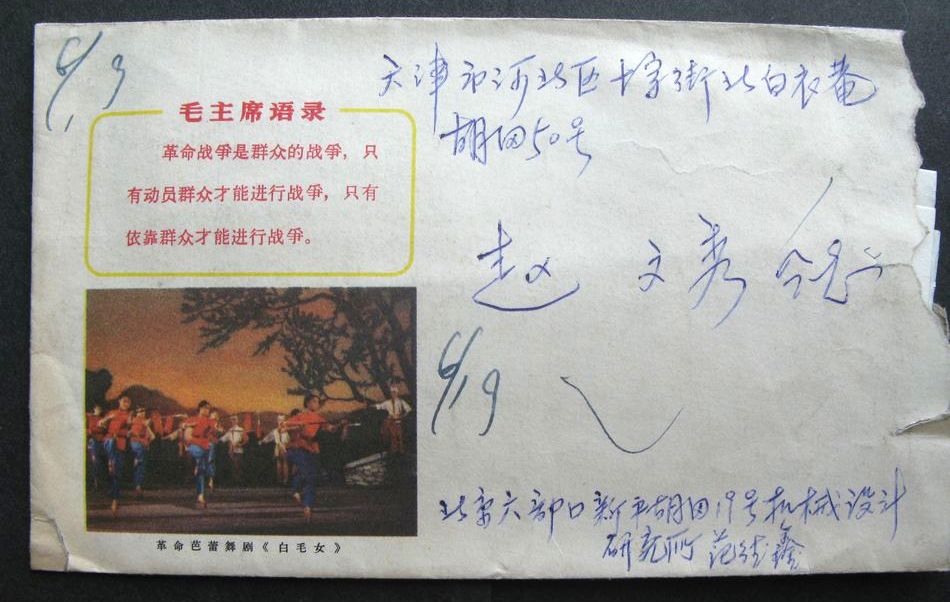 6/13
毛主席语录
革命战争是群众的战争，只
有动员群众才能进行战争，只有
依靠群众才能进行战争。
革命芭蕾舞剧《白毛女》
天津市河北区十字街北白衣庵
胡同50号
赵文秀
6/19
北京六部口新平胡同19号机械设计
研究所 范